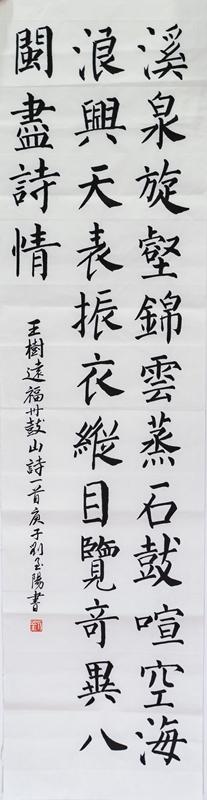 溪泉旋壑錦雲蒸石鼓喧空海
浪興天表振衣縱目覽奇異八
閩盡詩情
王樹遠福州鼓山詩一首庚子劉玉陽書